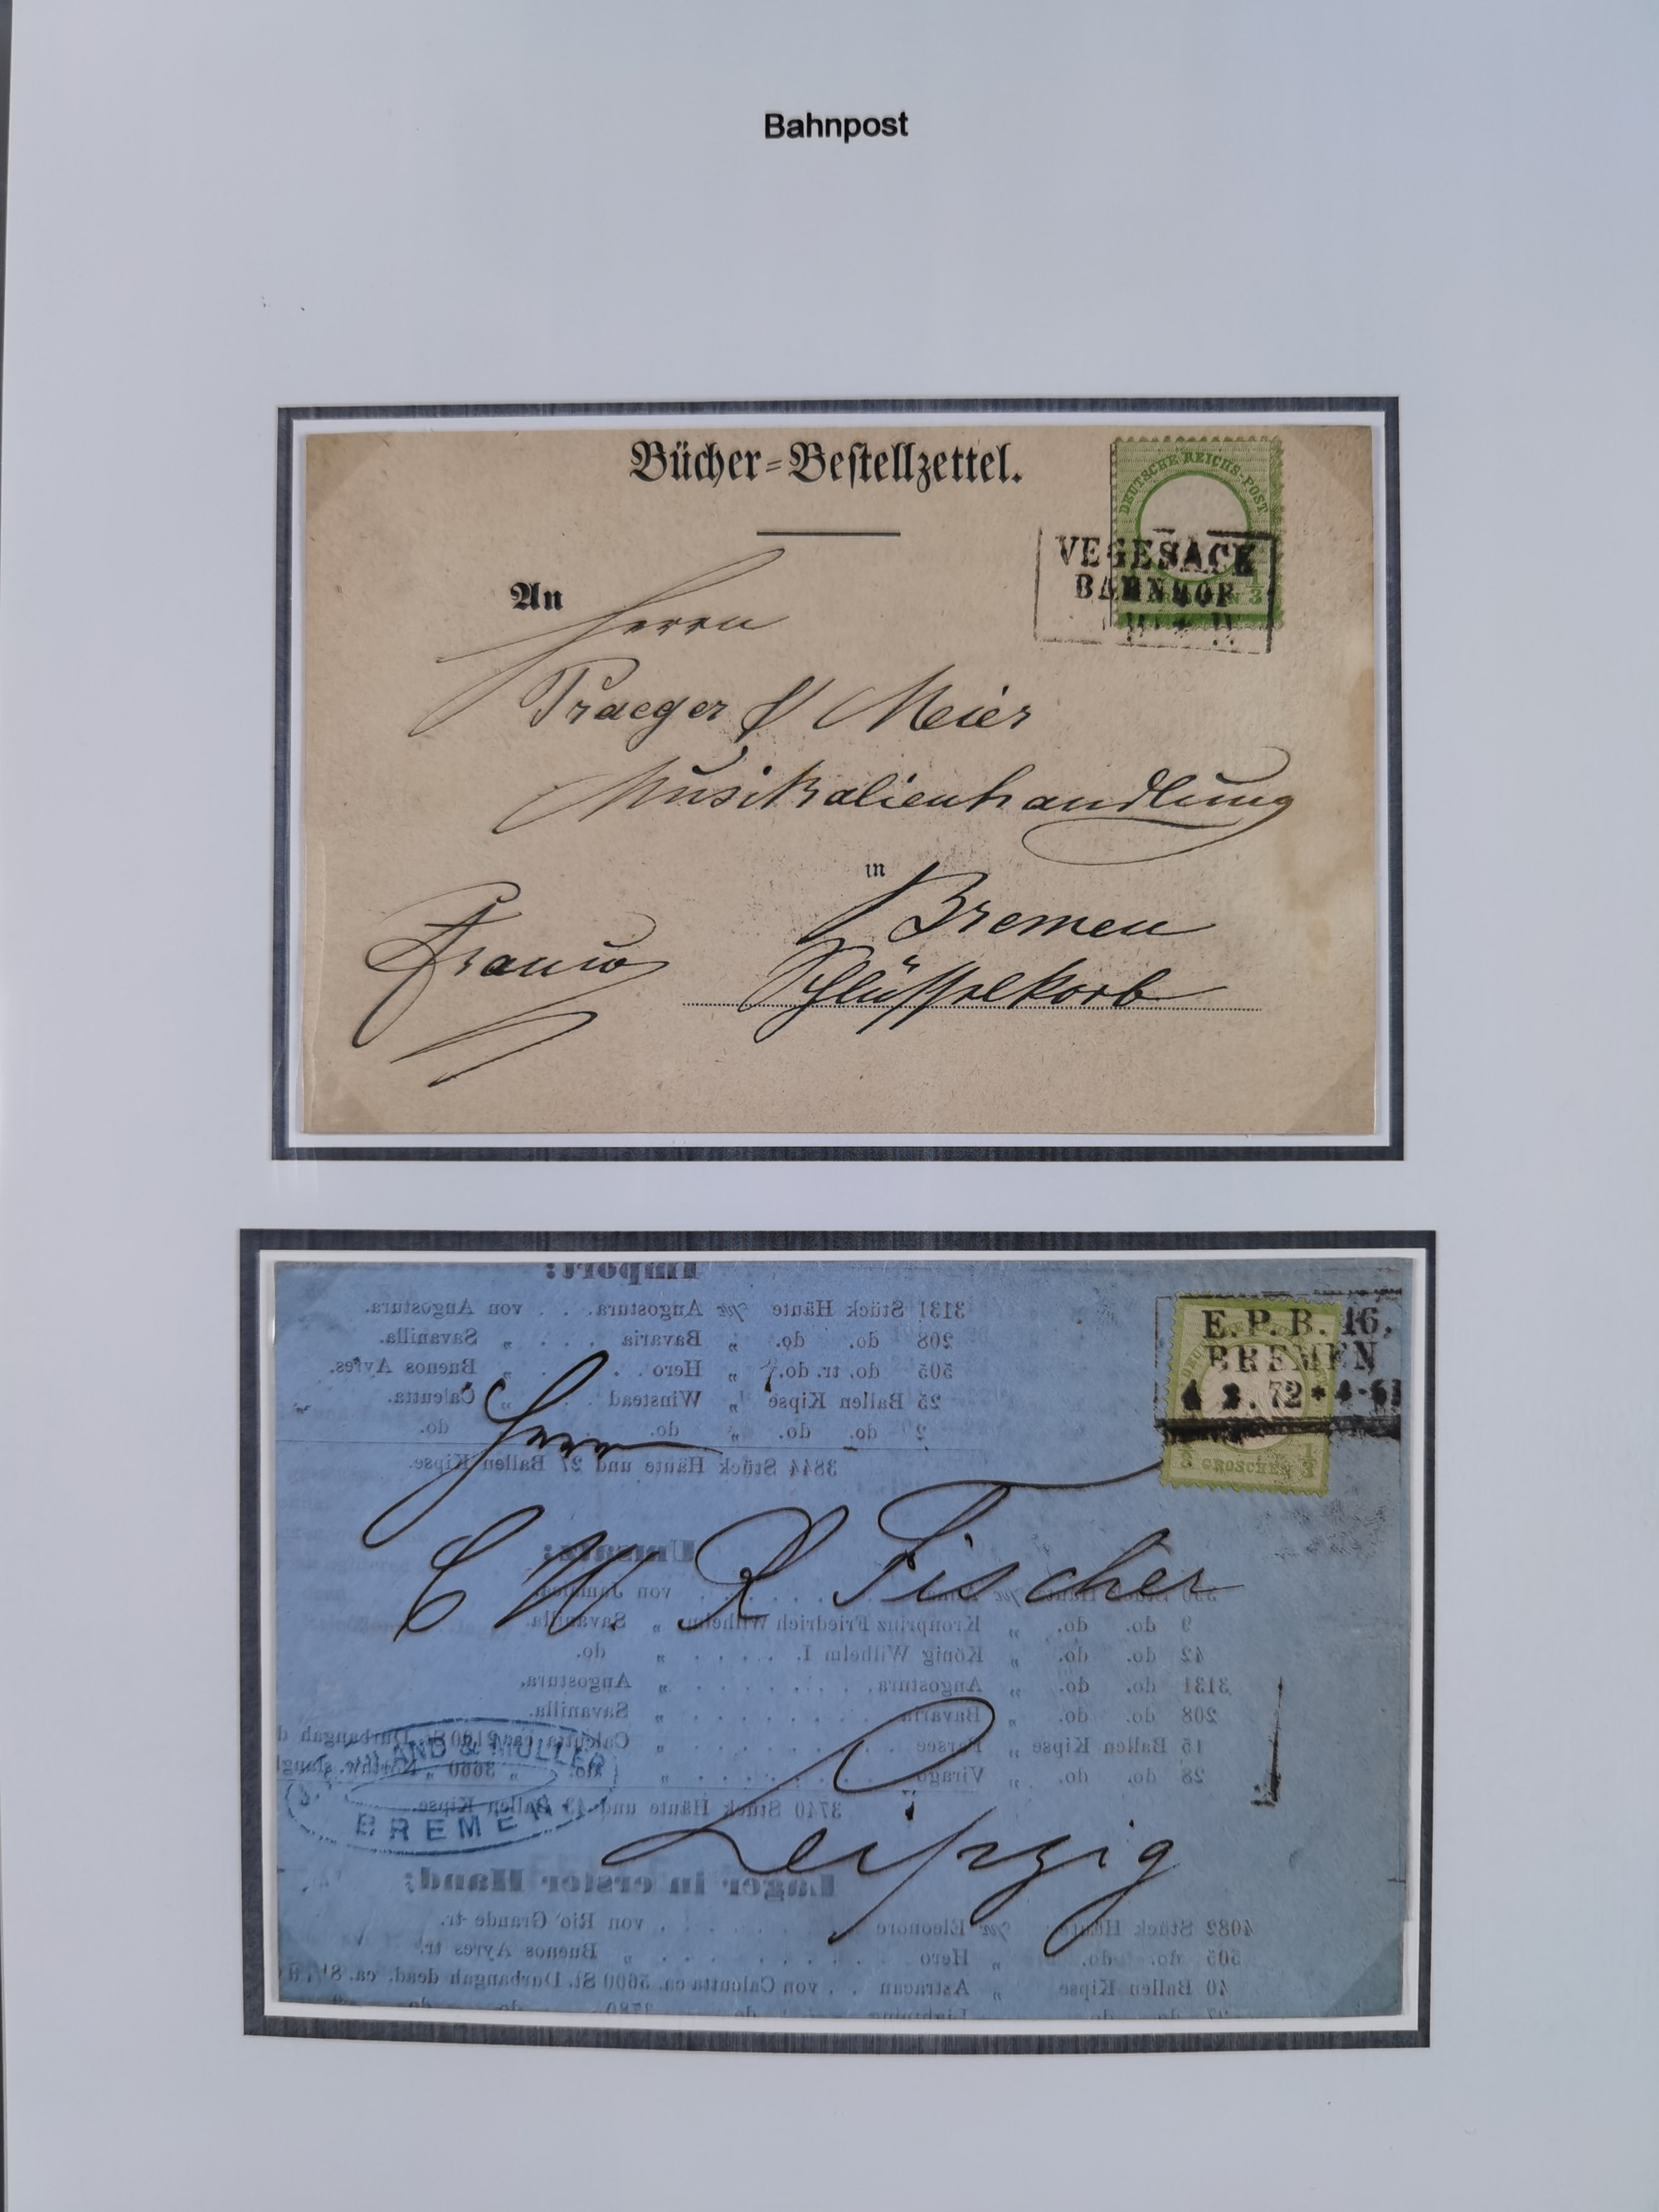 Bahnpost
Bücher-Bestellzettel.
DEUTSCHE REICHS-POST
VEGESACK
BAHNHOF
3
An
Herrn
Praeger & Meier
Musikalienhandlung
in
Bremen
Franco
Schlüsselkorb
Import:
3131 Stück Häute pr Angostura. . . von Angostura.
208 do. do. „ Bavaria . . . . „ Savanilla.
505 do. tr. do. „ Hero . . . „ Buenos Ayres.
25 Ballen Kipse „ Winstead . . „ Calcutta.
2 do. do. „ do. do.
3844 Stück Häute und 27 Ballen Kipse.
E. P. B. 16.
BREMEN
72
GROSCHEN
1/3
Herrn
C W. R Fischer
Umsatz:
von Jamaica.
9 do. do. „ Kronprinz Friedrich Wilhelm „ Savanilla.
42 do. do. „ König Wilhelm I. . . . . . „ do.
3131 do. do. „ Angostura. . . . . . . . „ Angostura.
208 do. do. „ Bavaria . . . . . . . . „ Savanilla.
15 Ballen Kipse „ Persee . . . . . . . . „ Calcutta ca. 2100 St. Durbangah d
28 do. do. „ Virago . . . . . . . „ do. „ 3660 „ Northw. slaugh
3740 Stück Häute und 43 Ballen Kipse
AND & MÜLLER
BREMEN
Leipzig
Lager in erster Hand:
4082 Stück Häute pr Eleonore . . . . . . von Rio Grande tr.
505 do. do. „ Hero . . . . . . . . „ Buenos Ayres tr.
40 Ballen Kipse „ Astracan . . von Calcutta ca. 5600 St. Durbangah dead. ca. 81/
do. 3780 do. do.